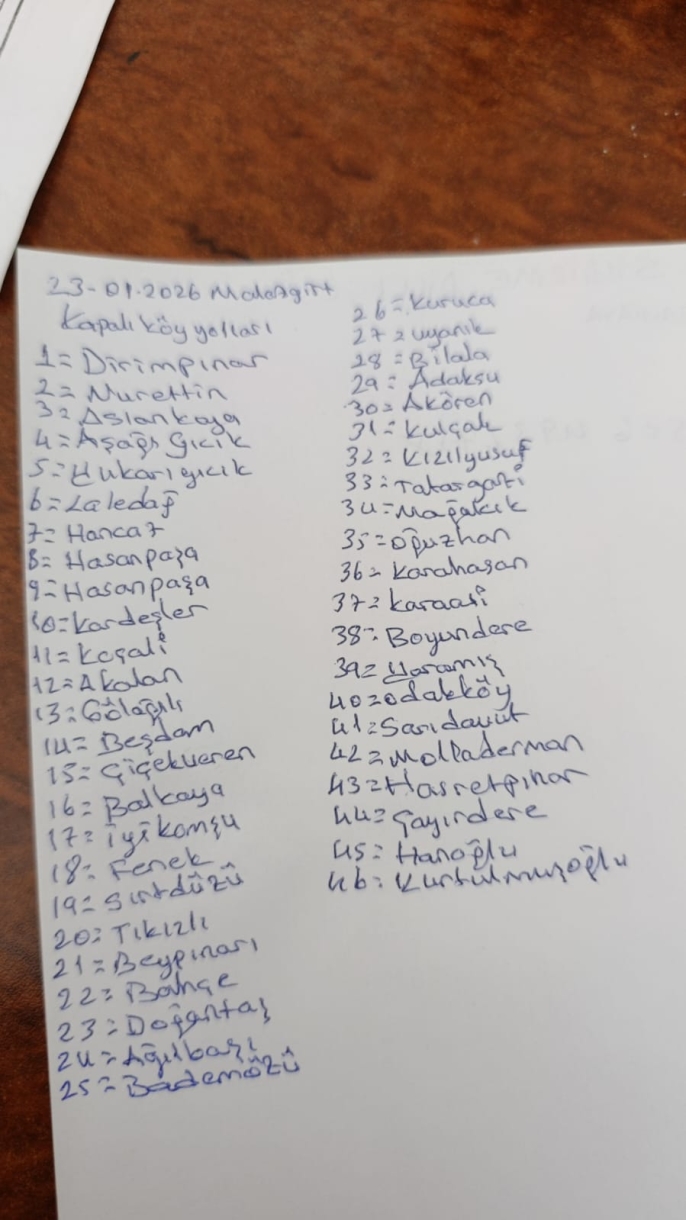 23-01-2026 Malazgirt
Kapalı köy yolları
1= Dirimpınar
2= Nurettin
3= Aslankaya
4= Aşağı Gıcık
5= Yukarı gıcık
6= Laledağ
7= Hancaz
8= Hasanpaşa
9= Hasanpaşa
10= Kardeşler
11= Koçali
12= Akalan
13= Gölağılı
14= Beşdam
15= Çiçekveren
16= Balkaya
17= İyikomşu
18= Fenek
19= Sırtdüzü
20= Tıkızlı
21= Beypınarı
22= Bahçe
23= Doğantaş
24= Ağılbaşı
25= Bademözü
26= Kuruca
27= uyanık
28= Bilala
29= Adaksu
30= Akören
31= Kulçak
32= Kızılyusuf
33= Tatargazi
34= Mağalcık
35= Oğuzhan
36= Karahasan
37= Karaali
38= Boyundere
39= Yaramış
40= Odakköy
41= Sarıdavut
42= Molladerman
43= Hasretpınar
44= Çayırdere
45= Hanoğlu
46= Kurtulmuşoğlu